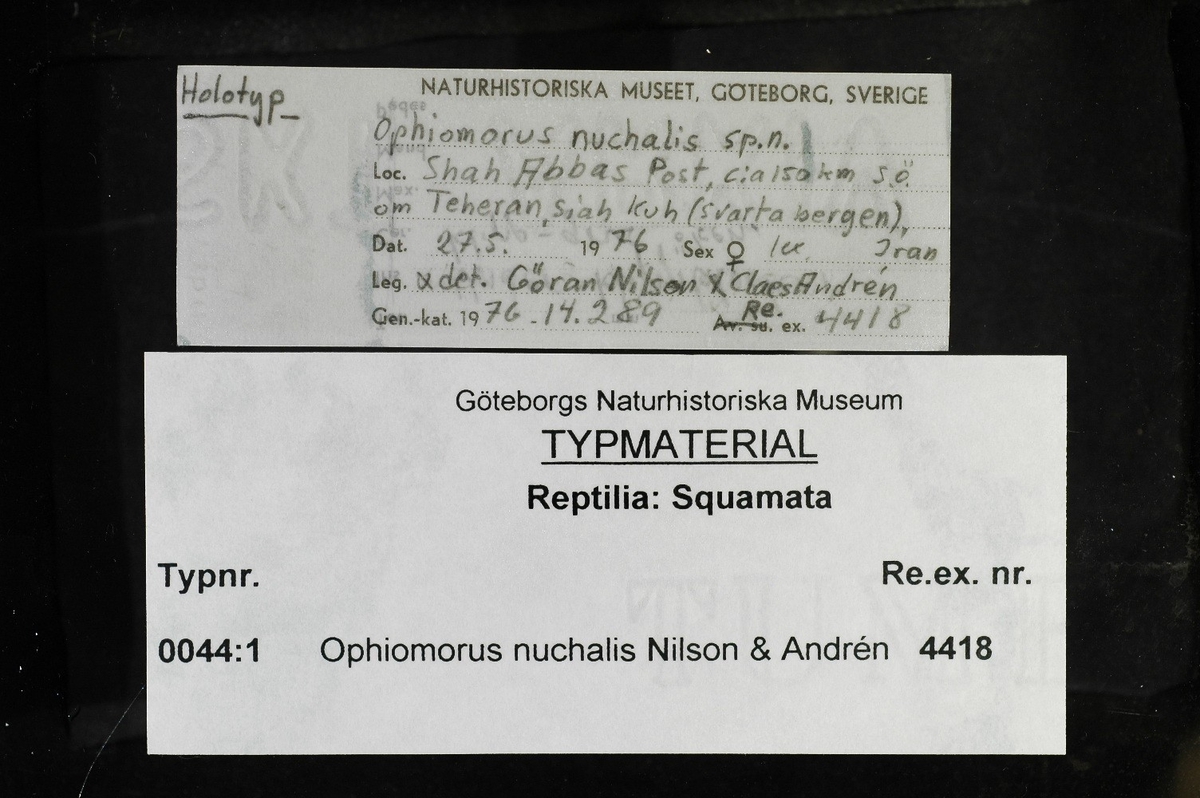 Holotyp
NATURHISTORISKA MUSEET, GÖTEBORG, SVERIGE
Ophiomorus nuchalis sp.n.
Loc. Shah Abbas Post, c:a 150 km SÖ
om Teheran, Siah Kuh (Svarta bergen),
Dat. 27.5. 1976 Sex ♀ Iran
Leg. & det. Göran Nilson & Claes Andrén
Gen.-kat. 1976 - 14.289 Re. ex. 4418
Göteborgs Naturhistoriska Museum
TYPMATERIAL
Reptilia: Squamata
Typnr. Re.ex. nr.
0044:1 Ophiomorus nuchalis Nilson & Andrén 4418